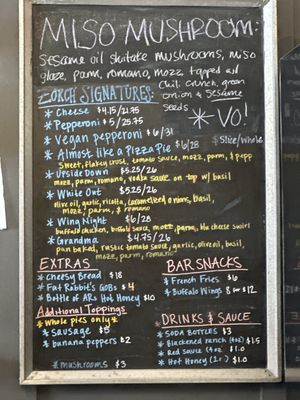 MISO MUSHROOM:
Sesame oil shitake mushrooms, miso
glaze, parm, romano, mozz, topped w/
chili crunch, green
onion & sesame
seeds
* VO!
ZORCH SIGNATURES:
$ Slice/whole
* Cheese $4.75/21.75
* Pepperoni $5/25.75
* Vegan pepperoni $6/31
* Almost like a Pizza Pie $6/28
Sweet, flakey crust, tomato sauce, mozz, parm, & pepp
* Upside Down $5.25/26
mozz, parm, romano, vodka sauce on top w/ basil
* White Out $5.25/26
olive oil, garlic, ricotta, caramelized onions, basil,
mozz, parm, & romano
* Wing Night $6/28
buffalo chicken, buffalo sauce, mozz, parm, blu cheese swirl
* Grandma $4.75/26
pan baked, rustic tomato sauce, garlic, olive oil, basil,
mozz, parm, romano
EXTRAS
* Cheesy Bread $18
* Fat Rabbit's GOBS $4
* Bottle of AR's Hot Honey $10
Additional Toppings
*Whole pies only*
* Sausage $5
* banana peppers $2
* mushrooms $3
BAR SNACKS
* French Fries $6
* Buffalo Wings 8 for $12
DRINKS & SAUCE
* SODA BOTTLES $3
* Blackened ranch (4oz) $1.5
* Red Sauce (4oz) $1.0
* Hot Honey (2 oz) $1.0